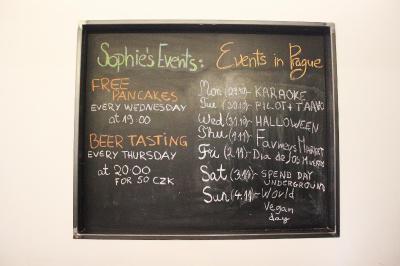 Sophie's Events:
FREE
PANCAKES
EVERY WEDNESDAY
at 19:00
BEER TASTING
EVERY THURSDAY
at 20:00
FOR 50 CZK
Events in Prague
Mon (29.10)- KARAOKE
Tue (30.10)- PILOT +
Wed (31.10)- HALLOWEEN
Thu (1.11)- Farmers Market
Fri (2.11)- Dia de los Muertos
Sat (3.11)- SPEND DAY
UNDERGROUND
Sun (4.11)- World
Vegan
day